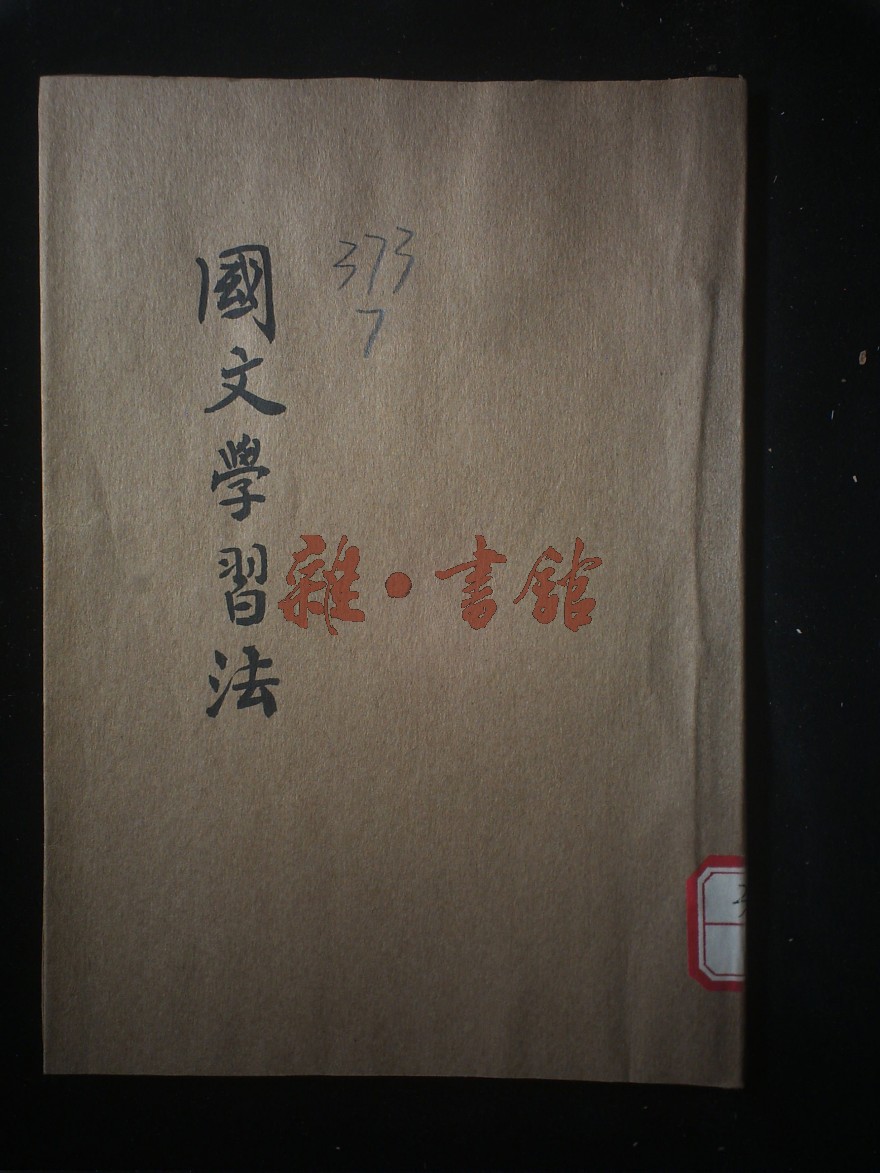 國文學習法
373
7
雜·書館